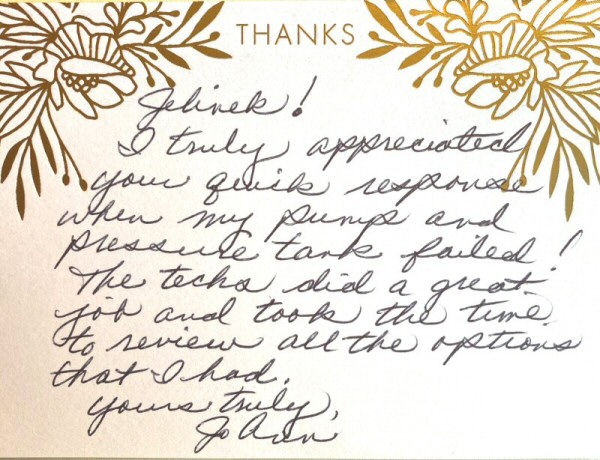 THANKS
Jelinek!
I truly appreciated
your quick response
when my pump and
pressure tank failed!
The techs did a great
job and took the time
to review all the options
that I had.
yours truly,
JoAnn